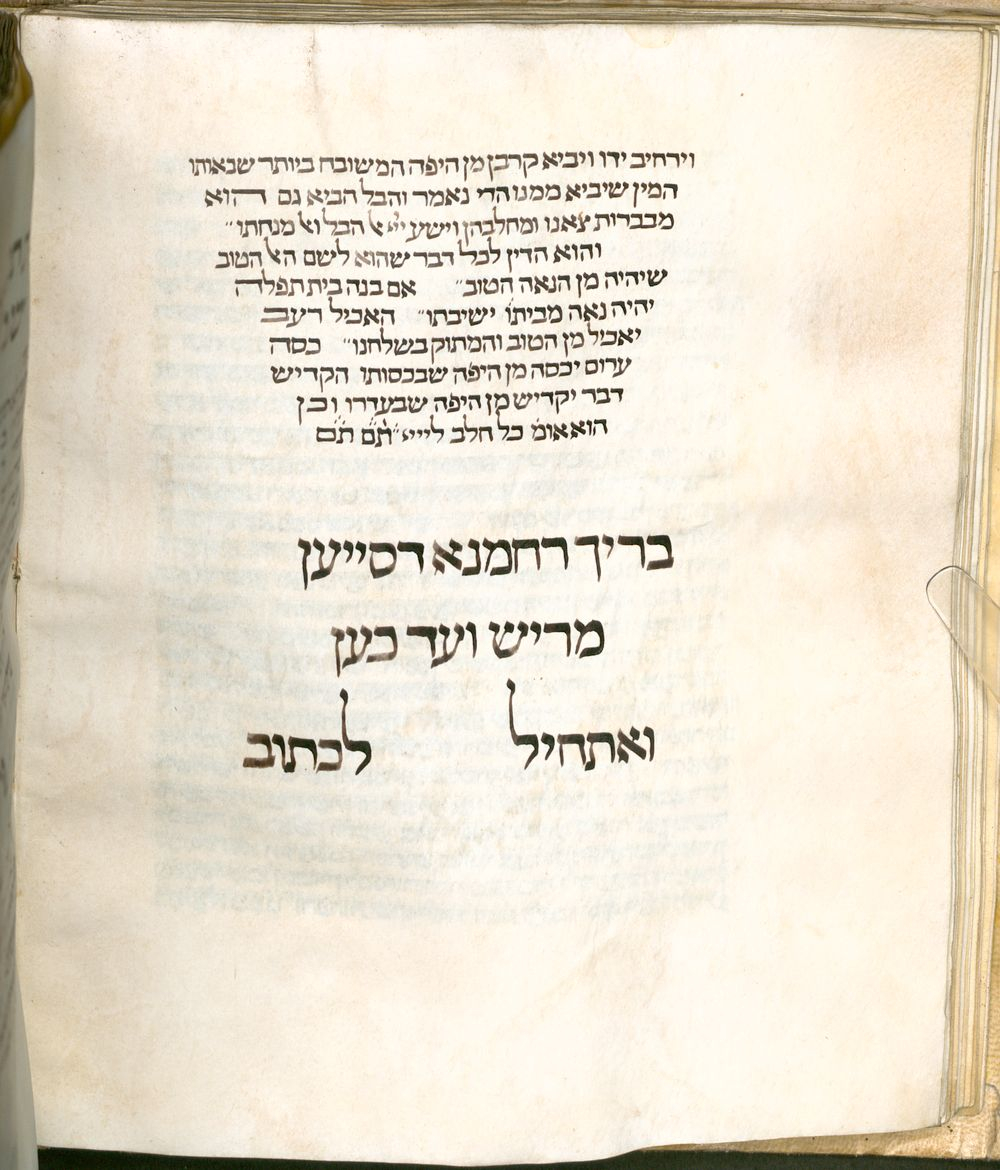 וירחיב ידו ויביא קרבן מן היפה המשובח ביותר שבאותו
המין שיביא ממנו הרי נאמר והבל הביא גם הוא
מבכרות צאנו ומחלבהן וישע ייי אל הבל ואל מנחתו״
והוא הדין לכל דבר שהוא לישם האל הטוב
שיהיה מן הנאה הטוב״ אם בנה בית תפלה
יהיה נאה מבית ישיבתו״ האכיל רעב
יאכיל מן הטוב והמתוק בשלחנו״ כסה
ערום יכסה מן היפה שבכסותו הקדיש
דבר יקדיש מן היפה שבעדרו וכן
הוא אומ כל חלב לייי״ תם תם
בריך רחמנא דסייען
מריש ועד כען
ואתחיל לכתוב